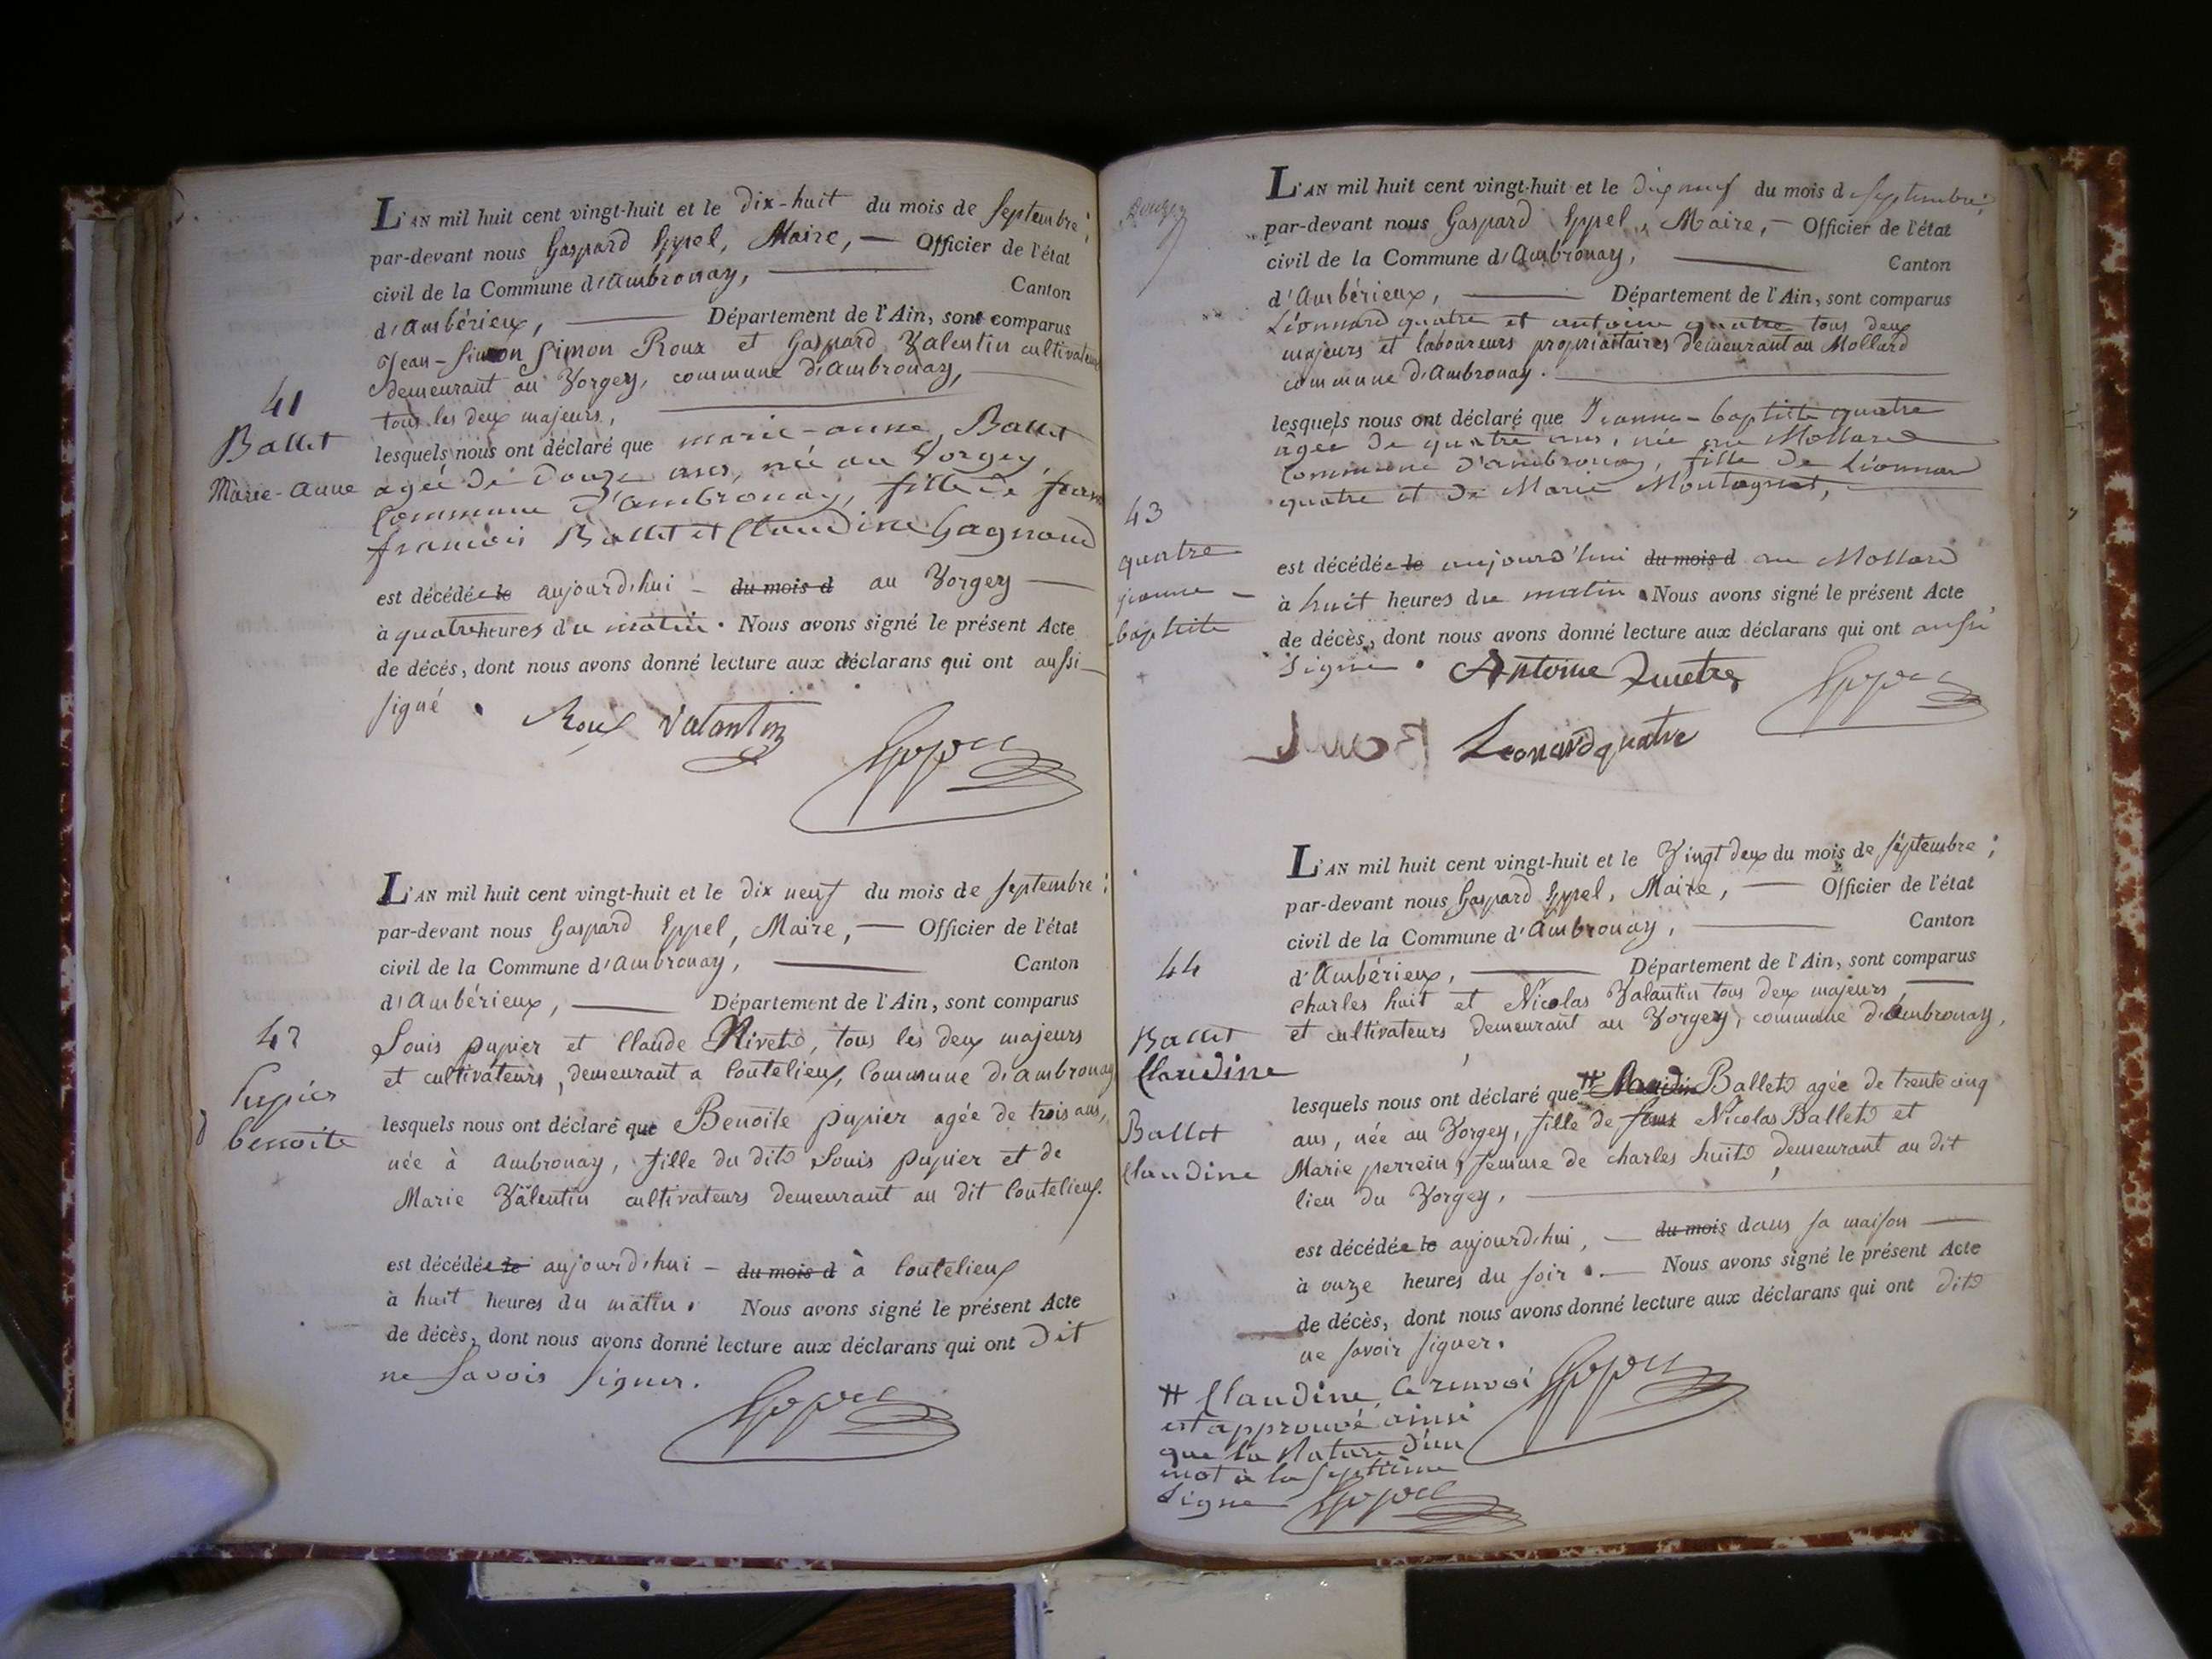 L'AN mil huit cent vingt-huit et le dix-huit du mois de septembre;
par-devant nous Gaspard Eppel, Maire, — Officier de l'état
civil de la Commune d'Ambronay, — Canton
d'Ambérieux, — Département de l'Ain, sont comparus
Jean-Simon Simon Roux et Gaspard Valentin cultivateurs
demeurant au Vorgey, commune d'Ambronay, —
tous les deux majeurs, —
41
Ballet
Marie-Anne
lesquels nous ont déclaré que marie-anne Ballet
agée de douze ans, née au Vorgey
Commune d'ambronay, fille de jean
francois Ballet et Claudine Gagnoud
est décédée le aujourd'hui – du mois d au Vorgey —
à quatre heures du matin. Nous avons signé le présent Acte
de décès, dont nous avons donné lecture aux déclarans qui ont aussi
signé.
Roux Valantin Eppel
L'AN mil huit cent vingt-huit et le dix neuf du mois de septembre;
par-devant nous Gaspard Eppel, Maire, — Officier de l'état
civil de la Commune d'Ambronay, — Canton
d'Ambérieux, — Département de l'Ain, sont comparus
Louis pupier et Claude Rivet, tous les deux majeurs
et cultivateurs, demeurant a Coutelieux, Commune d'ambronay
42
pupier
benoite
lesquels nous ont déclaré que Benoite pupier agée de trois ans,
née à Ambronay, fille du dit Louis pupier et de
Marie Valentin cultivateurs demeurant au dit Coutelieux.
est décédée le aujourd'hui – du mois d à Coutelieux
à huit heures du matin. Nous avons signé le présent Acte
de décès, dont nous avons donné lecture aux déclarans qui ont dit
ne savoir signer.
Eppel
L'AN mil huit cent vingt-huit et le dix neuf du mois de septembre;
par-devant nous Gaspard Eppel, Maire, — Officier de l'état
civil de la Commune d'Ambronay, — Canton
d'Ambérieux, — Département de l'Ain, sont comparus
Léonnard quatre et antoine quatre tous deux
majeurs et laboureurs propriaitaires demeurant au Mollard
commune d'Ambronay. —
43
quatre
jeanne –
baptiste
lesquels nous ont déclaré que Jeanne-baptiste quatre
agée de quatre ans, née au Mollard
Commune d'ambronay, fille de Léonnard
quatre et de Marie Montagnat, —
est décédée le aujourd'hui du mois d au Mollard
à huit heures du matin. Nous avons signé le présent Acte
de décès, dont nous avons donné lecture aux déclarans qui ont aussi
signé. Antoine quatre Eppel
Leonard quatre
L'AN mil huit cent vingt-huit et le Vingt deux du mois de septembre;
par-devant nous Gaspard Eppel, Maire, — Officier de l'état
civil de la Commune d'Ambronay, — Canton
d'Ambérieux, — Département de l'Ain, sont comparus
charles huit et Nicolas Valantin tous deux majeurs —
et cultivateurs demeurant au Vorgey, commune d'Ambronay,
44
Ballet
Claudine
Ballet
Claudine
lesquels nous ont déclaré que # Claudine Ballet agée de trente cinq
ans, née au Vorgey, fille de Nicolas Ballet et
Marie perrein, femme de charles huit, demeurant au dit
lieu du Vorgey, —
est décédée le aujourd'hui, — du mois dans sa maison —
à onze heures du soir. — Nous avons signé le présent Acte
de décès, dont nous avons donné lecture aux déclarans qui ont dit
ne savoir signer.
Eppel
# Claudine, Ce renvoi
est approuvé ainsi
que la Rature d'un
mot à la septième
Ligne Eppel